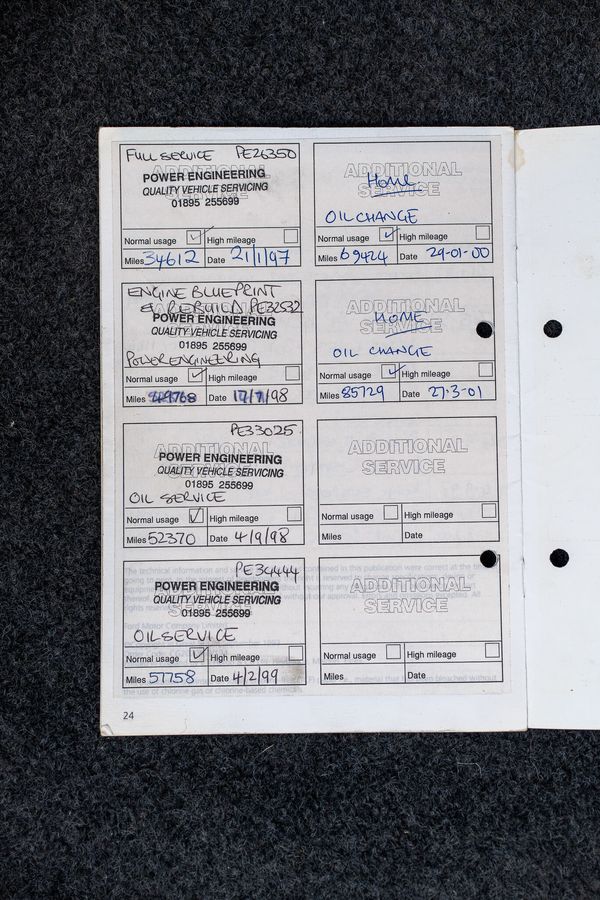 FULL SERVICE PE26350
ADDITIONAL
POWER ENGINEERING
QUALITY VEHICLE SERVICING
01895 255699
Normal usage ✓ High mileage
Miles 34612 Date 21/1/97
ENGINE BLUEPRINT
& REBUILD PE32532
POWER ENGINEERING
QUALITY VEHICLE SERVICING
01895 255699
POWER ENGINEERING
Normal usage ✓ High mileage
Miles Date 17/7/98
PE33025
ADDITIONAL
POWER ENGINEERING
QUALITY VEHICLE SERVICING
01895 255699
OIL SERVICE
Normal usage ✓ High mileage
Miles 52370 Date 4/9/98
PE34444
ADDITIONAL
POWER ENGINEERING
QUALITY VEHICLE SERVICING
01895 255699
OIL SERVICE
Normal usage ✓ High mileage
Miles 57758 Date 4/2/99
24
ADDITIONAL
SERVICE
HOME
OIL CHANGE
Normal usage ✓ High mileage
Miles 69424 Date 29-01-00
ADDITIONAL
SERVICE
HOME
OIL CHANGE
Normal usage ✓ High mileage
Miles 85729 Date 27-3-01
ADDITIONAL
SERVICE
Normal usage High mileage
Miles Date
ADDITIONAL
SERVICE
Normal usage High mileage
Miles Date